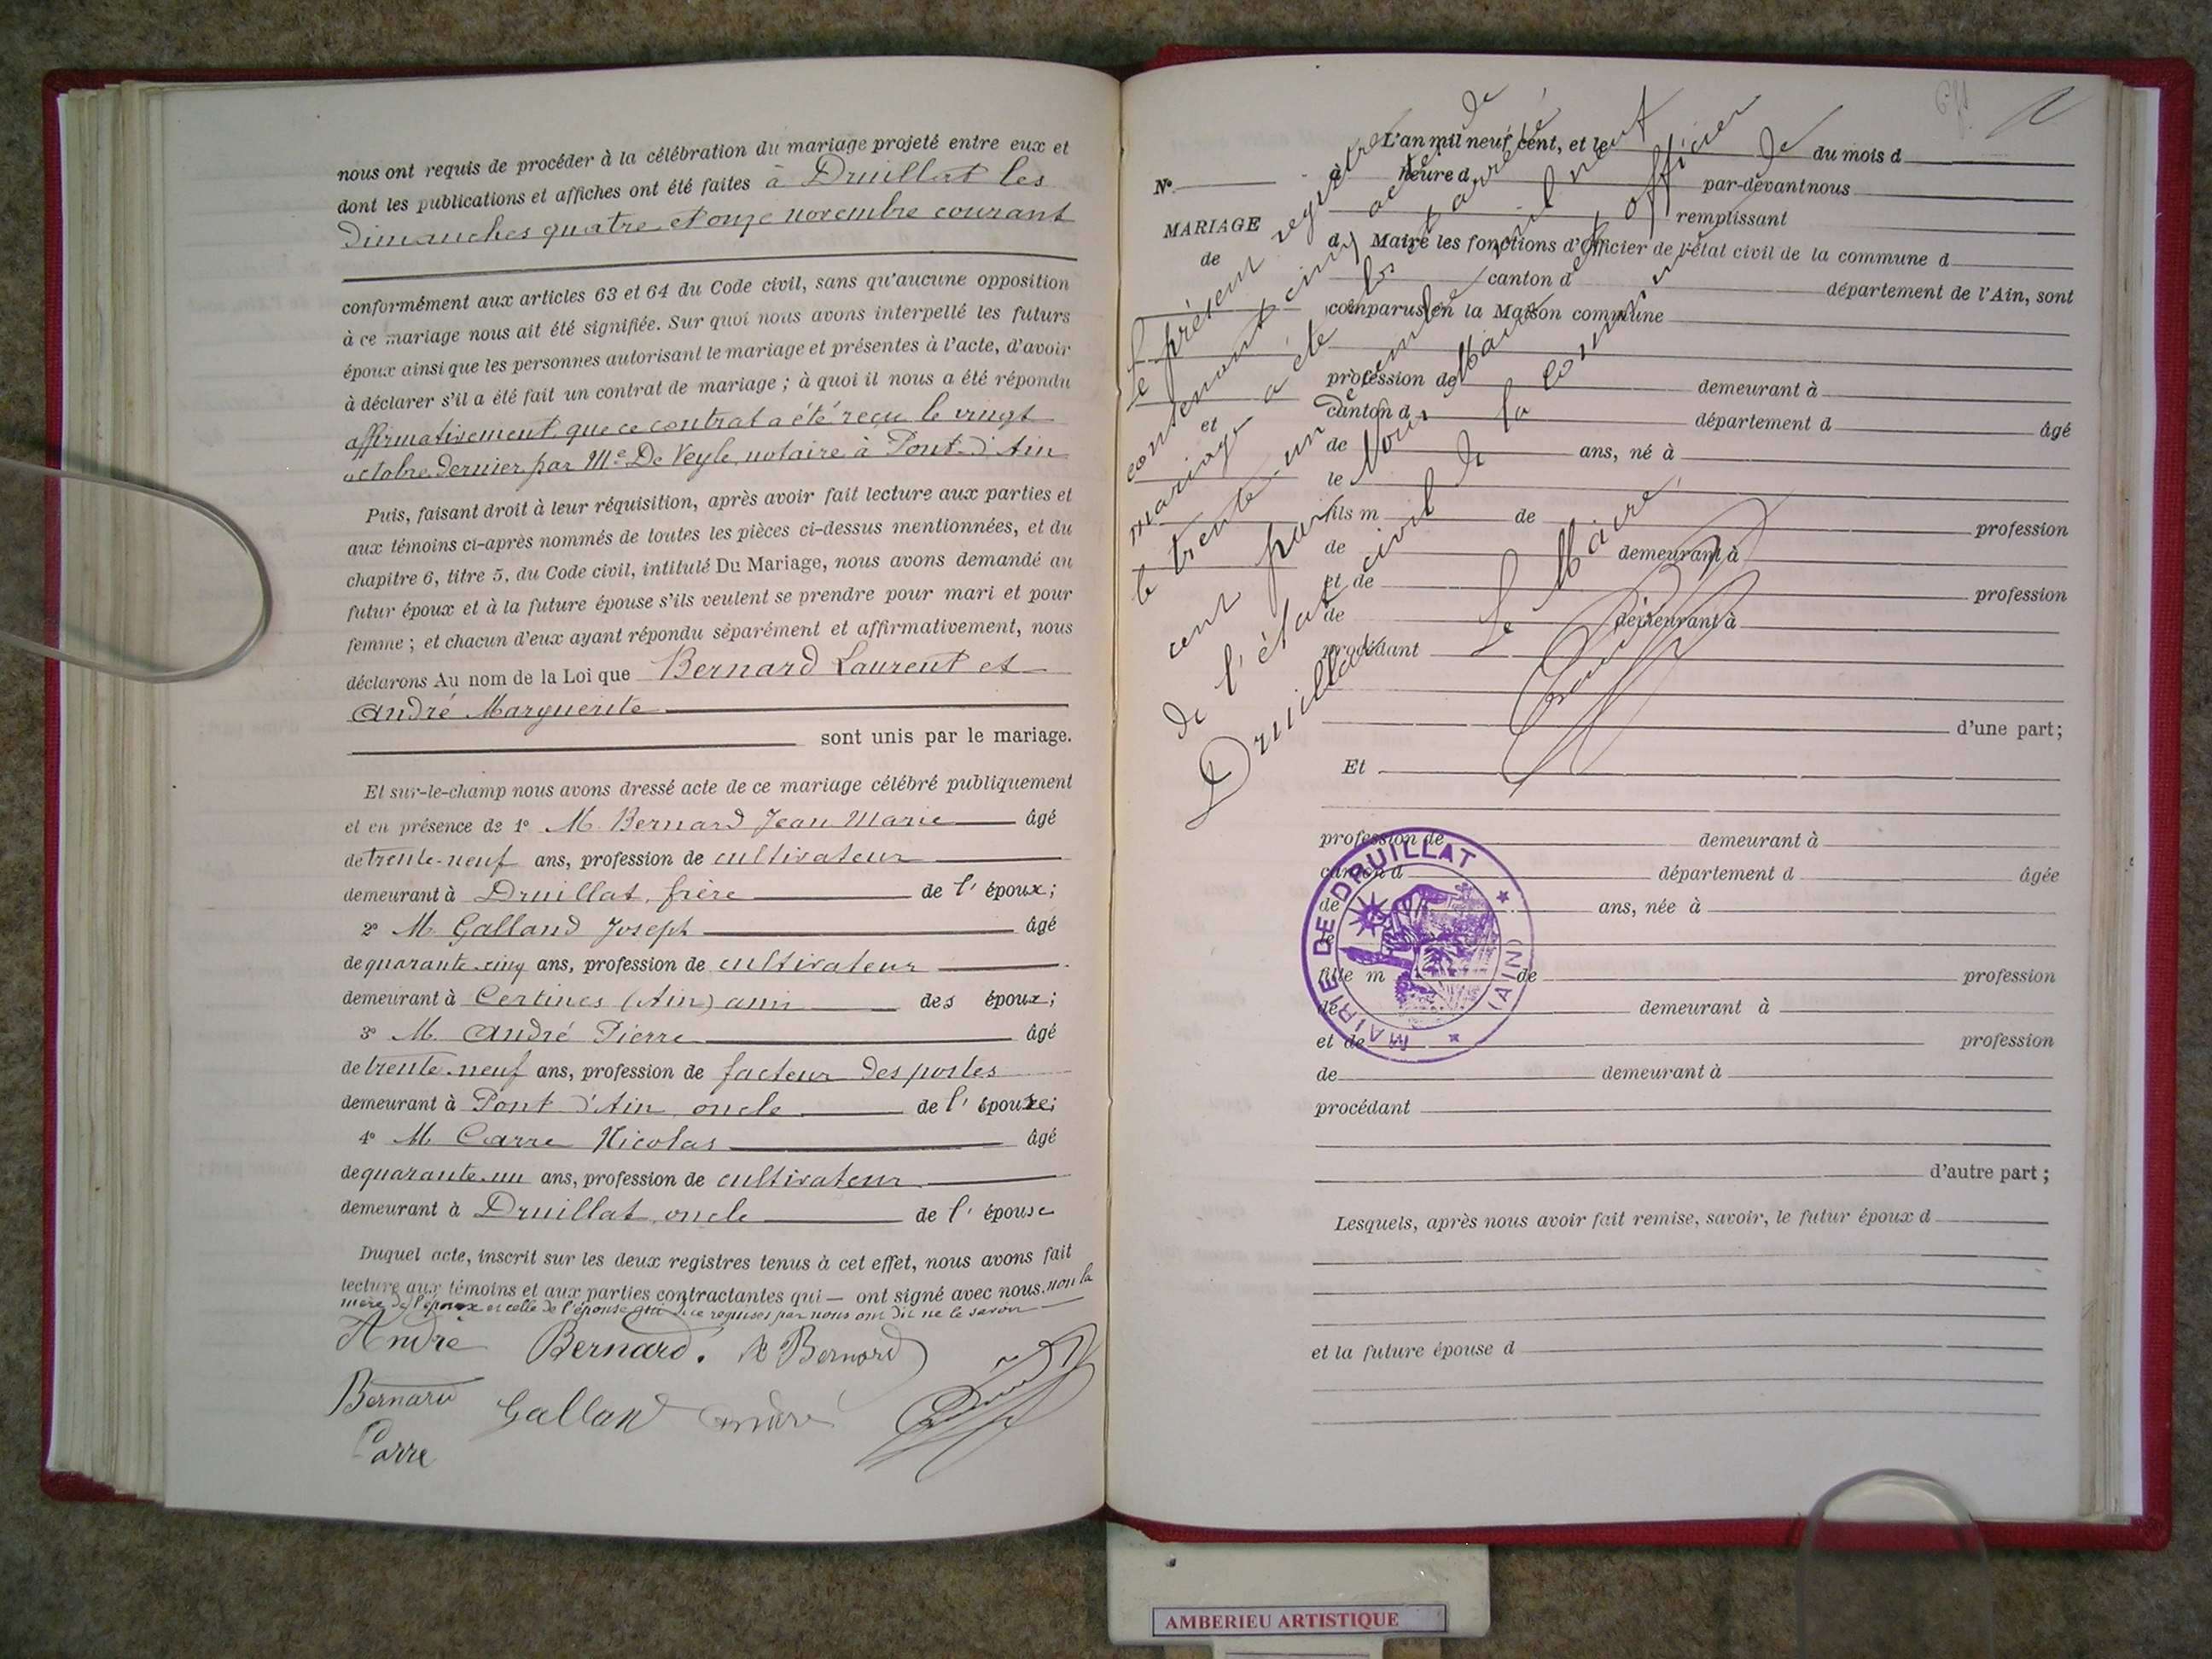 nous ont requis de procéder à la célébration du mariage projeté entre eux et
dont les publications et affiches ont été faites à Druillat les
Dimanches quatre et onze novembre courant
conformément aux articles 63 et 64 du Code civil, sans qu'aucune opposition
à ce mariage nous ait été signifiée. Sur quoi nous avons interpellé les futurs
époux ainsi que les personnes autorisant le mariage et présentes à l'acte, d'avoir
à déclarer s'il a été fait un contrat de mariage ; à quoi il nous a été répondu
affirmativement, que ce contrat a été reçu le vingt
octobre dernier par Me De Veyle, notaire à Pont-d'Ain
Puis, faisant droit à leur réquisition, après avoir fait lecture aux parties et
aux témoins ci-après nommés de toutes les pièces ci-dessus mentionnées, et du
chapitre 6, titre 5, du Code civil, intitulé Du Mariage, nous avons demandé au
futur époux et à la future épouse s'ils veulent se prendre pour mari et pour
femme ; et chacun d'eux ayant répondu séparément et affirmativement, nous
déclarons Au nom de la Loi que Bernard Laurent et
André Marguerite
sont unis par le mariage.
Et sur-le-champ nous avons dressé acte de ce mariage célébré publiquement
et en présence de 1° M. Bernard Jean Marie âgé
de trente-neuf ans, profession de cultivateur
demeurant à Druillat, frère de l'époux ;
2° M. Galland Joseph âgé
de quarante-cinq ans, profession de cultivateur
demeurant à Certines (Ain) ami des époux ;
3° M. André Pierre âgé
de trente-neuf ans, profession de facteur des postes
demeurant à Pont d'Ain, oncle de l'épouse ;
4° M. Carre Nicolas âgé
de quarante-un ans, profession de cultivateur
demeurant à Druillat, oncle de l'épouse
Duquel acte, inscrit sur les deux registres tenus à cet effet, nous avons fait
lecture aux témoins et aux parties contractantes qui — ont signé avec nous, non la
mère de l'époux et celle de l'épouse qui de ce requises par nous ont dit ne le savoir
André Bernard. Bernard
Bernard Galland André
Carre
N°
MARIAGE
de
et
L'an mil neuf cent, et le du mois d
à heure d par-devant nous
remplissant
d Maire les fonctions d'Officier de l'état civil de la commune d
canton d département de l'Ain, sont
comparus en la Maison commune
profession de demeurant à
canton d département d âgé
de ans, né à
le
fils m de profession
de demeurant à
et de profession
de demeurant à
procédant
d'une part ;
Et
profession de demeurant à
canton d département d âgée
de ans, née à
le
fille m de profession
de demeurant à
et de profession
de demeurant à
procédant
d'autre part ;
Lesquels, après nous avoir fait remise, savoir, le futur époux d
et la future épouse d
Le présent registre
contenant cinq actes de
mariage a été clos et arrêté
le trente-un décembre mil neuf
cent par Nous Maire et officier
de l'état civil de la commune de
Druillat
Le Maire,
MAIRIE DE DRUILLAT
(AIN)
AMBERIEU ARTISTIQUE